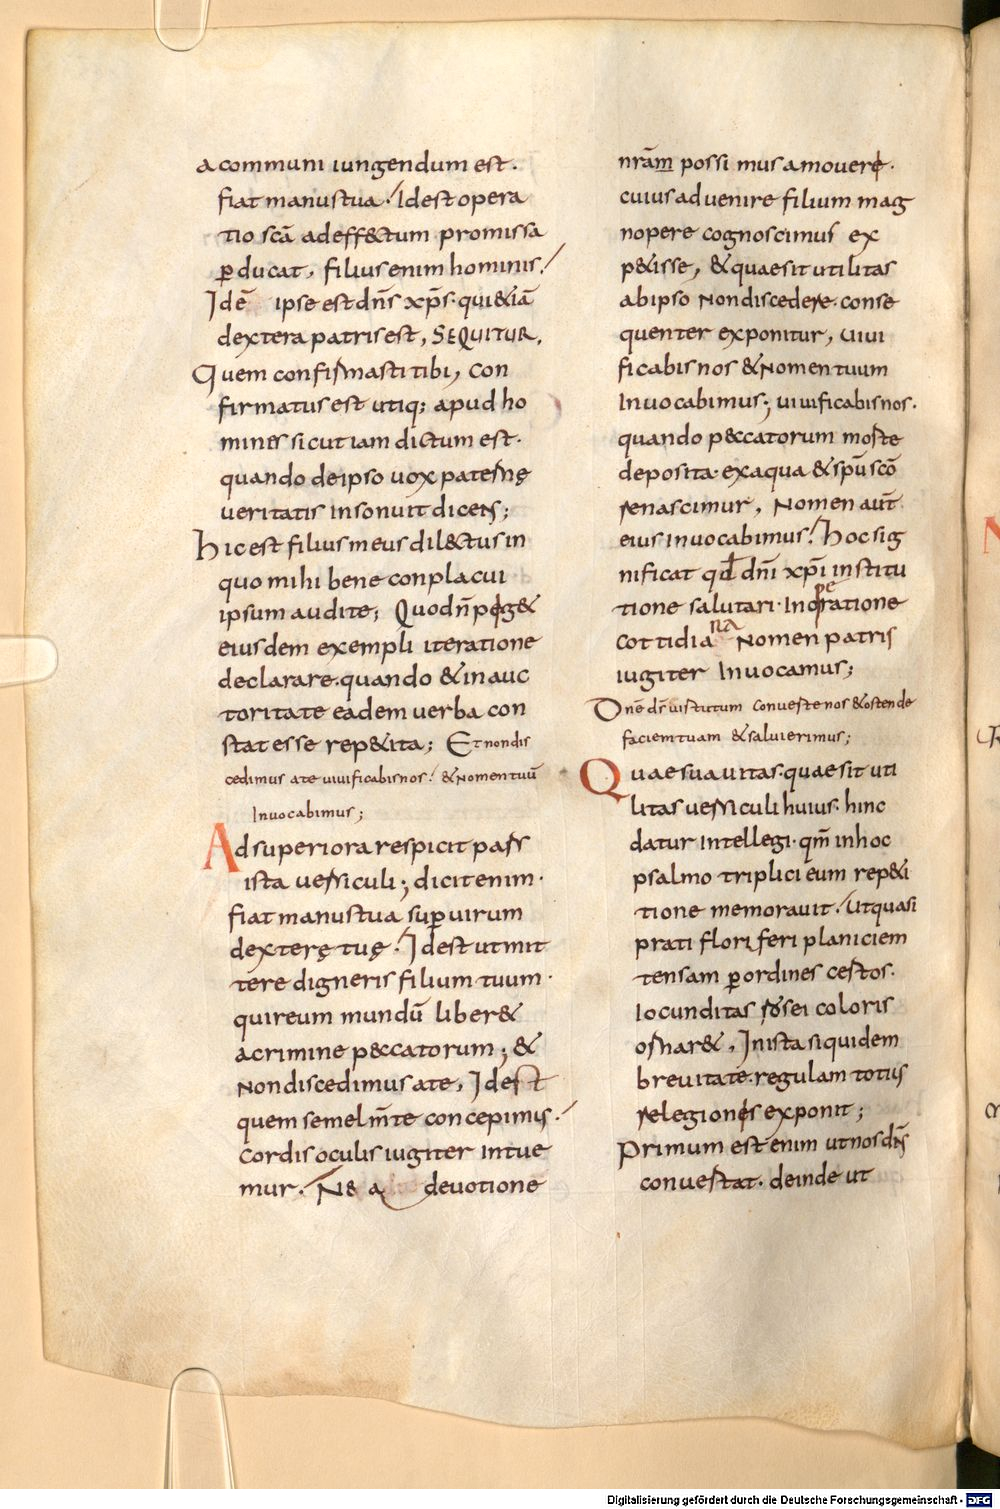 a communi iungendum est.
fiat manus tua. Idest opera
tio scā ad eff&ctum promissa
ꝑducat, filius enim hominis.
Idē ipse est dn̄s xp̄s. qui &iā
dextera patris est, SEQUITUR.
Quem confirmasti tibi, Con
firmatus est utiq; apud ho
mines sicut iam dictum est.
quando de ipso uox paternę
ueritatis insonuit dicens;
Hic est filius meus dil&ctus in
quo mihi bene conplacui
ipsum audite; Quod n̄ pig&
eiusdem exempli iteratione
declarare. quando & in auc
toritate eadem uerba con
stat esse rep&ita; Et non dis
cedimus a te uiuificabis nos. & nomen tuū
Inuocabimus;
Ad superiora respicit pars
ista uersiculi; dicit enim.
fiat manus tua suꝑ uirum
dexterę tuę. Idest ut mit
tere digneris filium tuum.
qui reum mundū liber&
a crimine p&ccatorum; &
Non discedimus a te, Idest
quem semel m̄te concepimus.
Cordis oculis iugiter intue
mur. Ne a deuotione
nr̄am possimus amouere.
cuius aduenire filium mag
nopere cognoscimus ex
p&isse, & quae sit utilitas
ab ipso Non discedere. conse
quenter exponitur, Uiui
ficabis nos & Nomen tuum
Inuocabimus; uiuificabis nos.
quando p&ccatorum morte
deposita. ex aqua & sp̄u scō
renascimur, Nomen aut̄
eius inuocabimus. Hoc sig
nificat qd dn̄i xp̄i institu
tione salutari. In operatione
cottidiana Nomen patris
iugiter Inuocamus;
Dn̄e ds̄ uirtutum Conuerte nos & ostende
faciem tuam & salui erimus;
Quae suauitas. quae sit uti
litas uersiculi huius. hinc
datur intellegi. qm̄ in hoc
psalmo triplici eum rep&i
tione memorauit. Ut quasi
prati floriferi planiciem
tensam ꝑ ordines certos.
Iocunditas rosei coloris
ornar&, In ista siquidem
breuitate. regulam totius
relegionis exponit;
Primum est enim ut nos dn̄s
conuertat. deinde ut
Digitalisierung gefördert durch die Deutsche Forschungsgemeinschaft - DFG